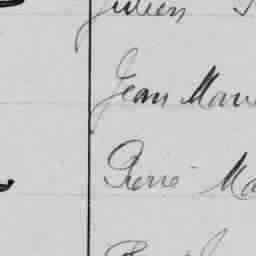 Julien
Jean Mari
Pierre Ma